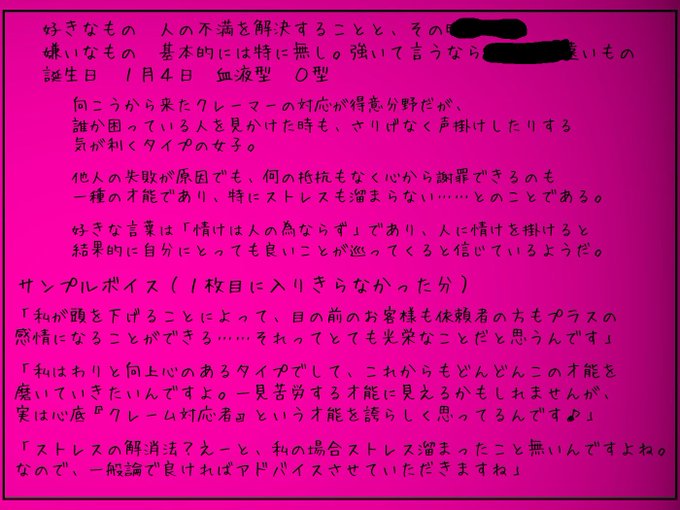 好きなもの　人の不満を解決することと、その
嫌いなもの　基本的には特に無し。強いて言うなら　いもの
誕生日　１月４日　血液型　Ｏ型
向こうから来たクレーマーの対応が得意分野だが、
誰か困っている人を見かけた時も、さりげなく声掛けしたりする
気が利くタイプの女子。
他人の失敗が原因でも、何の抵抗もなく心から謝罪できるのも
一種の才能であり、特にストレスも溜まらない……とのことである。
好きな言葉は「情けは人の為ならず」であり、人に情けを掛けると
結果的に自分にとっても良いことが巡ってくると信じているようだ。
サンプルボイス（１枚目に入りきらなかった分）
「私が頭を下げることによって、目の前のお客様も依頼者の方もプラスの
感情になることができる……それってとても光栄なことだと思うんです」
「私はわりと向上心のあるタイプでして、これからもどんどんこの才能を
磨いていきたいんですよ。一見苦労する才能に見えるかもしれませんが、
実は心底『クレーム対応者』という才能を誇らしく思ってるんです♪」
「ストレスの解消法？えーと、私の場合ストレス溜まったこと無いんですよね。
なので、一般論で良ければアドバイスさせていただきますね」